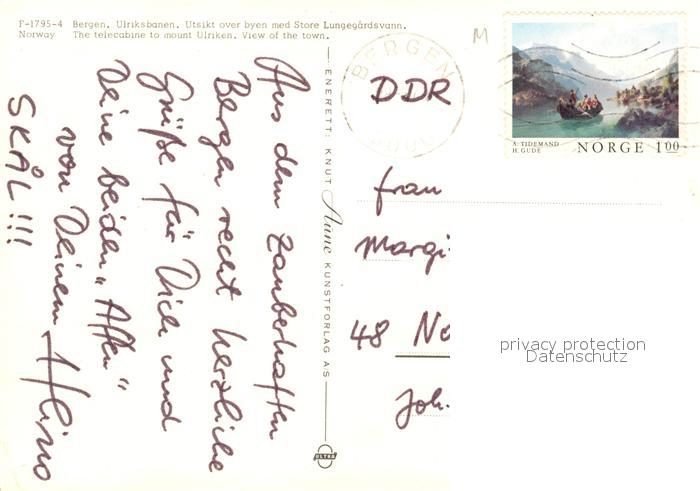 F-1795-4 Bergen. Ulriksbanen. Utsikt over byen med Store Lungegårdsvann.
Norway The telecabine to mount Ulriken. View of the town.
Aus dem zauberhaften
Bergen recht herzliche
Grüße für Dich und
Deine beiden "Affen"
von Deinem Heino
SKÅL!!!
ENERETT: KNUT Aune KUNSTFORLAG A/S
ULTRA
M
BERGEN
DDR
A. TIDEMAND
H. GUDE
NORGE 1 00
Frau
Margi
48 No
Joh.
privacy protection
Datenschutz